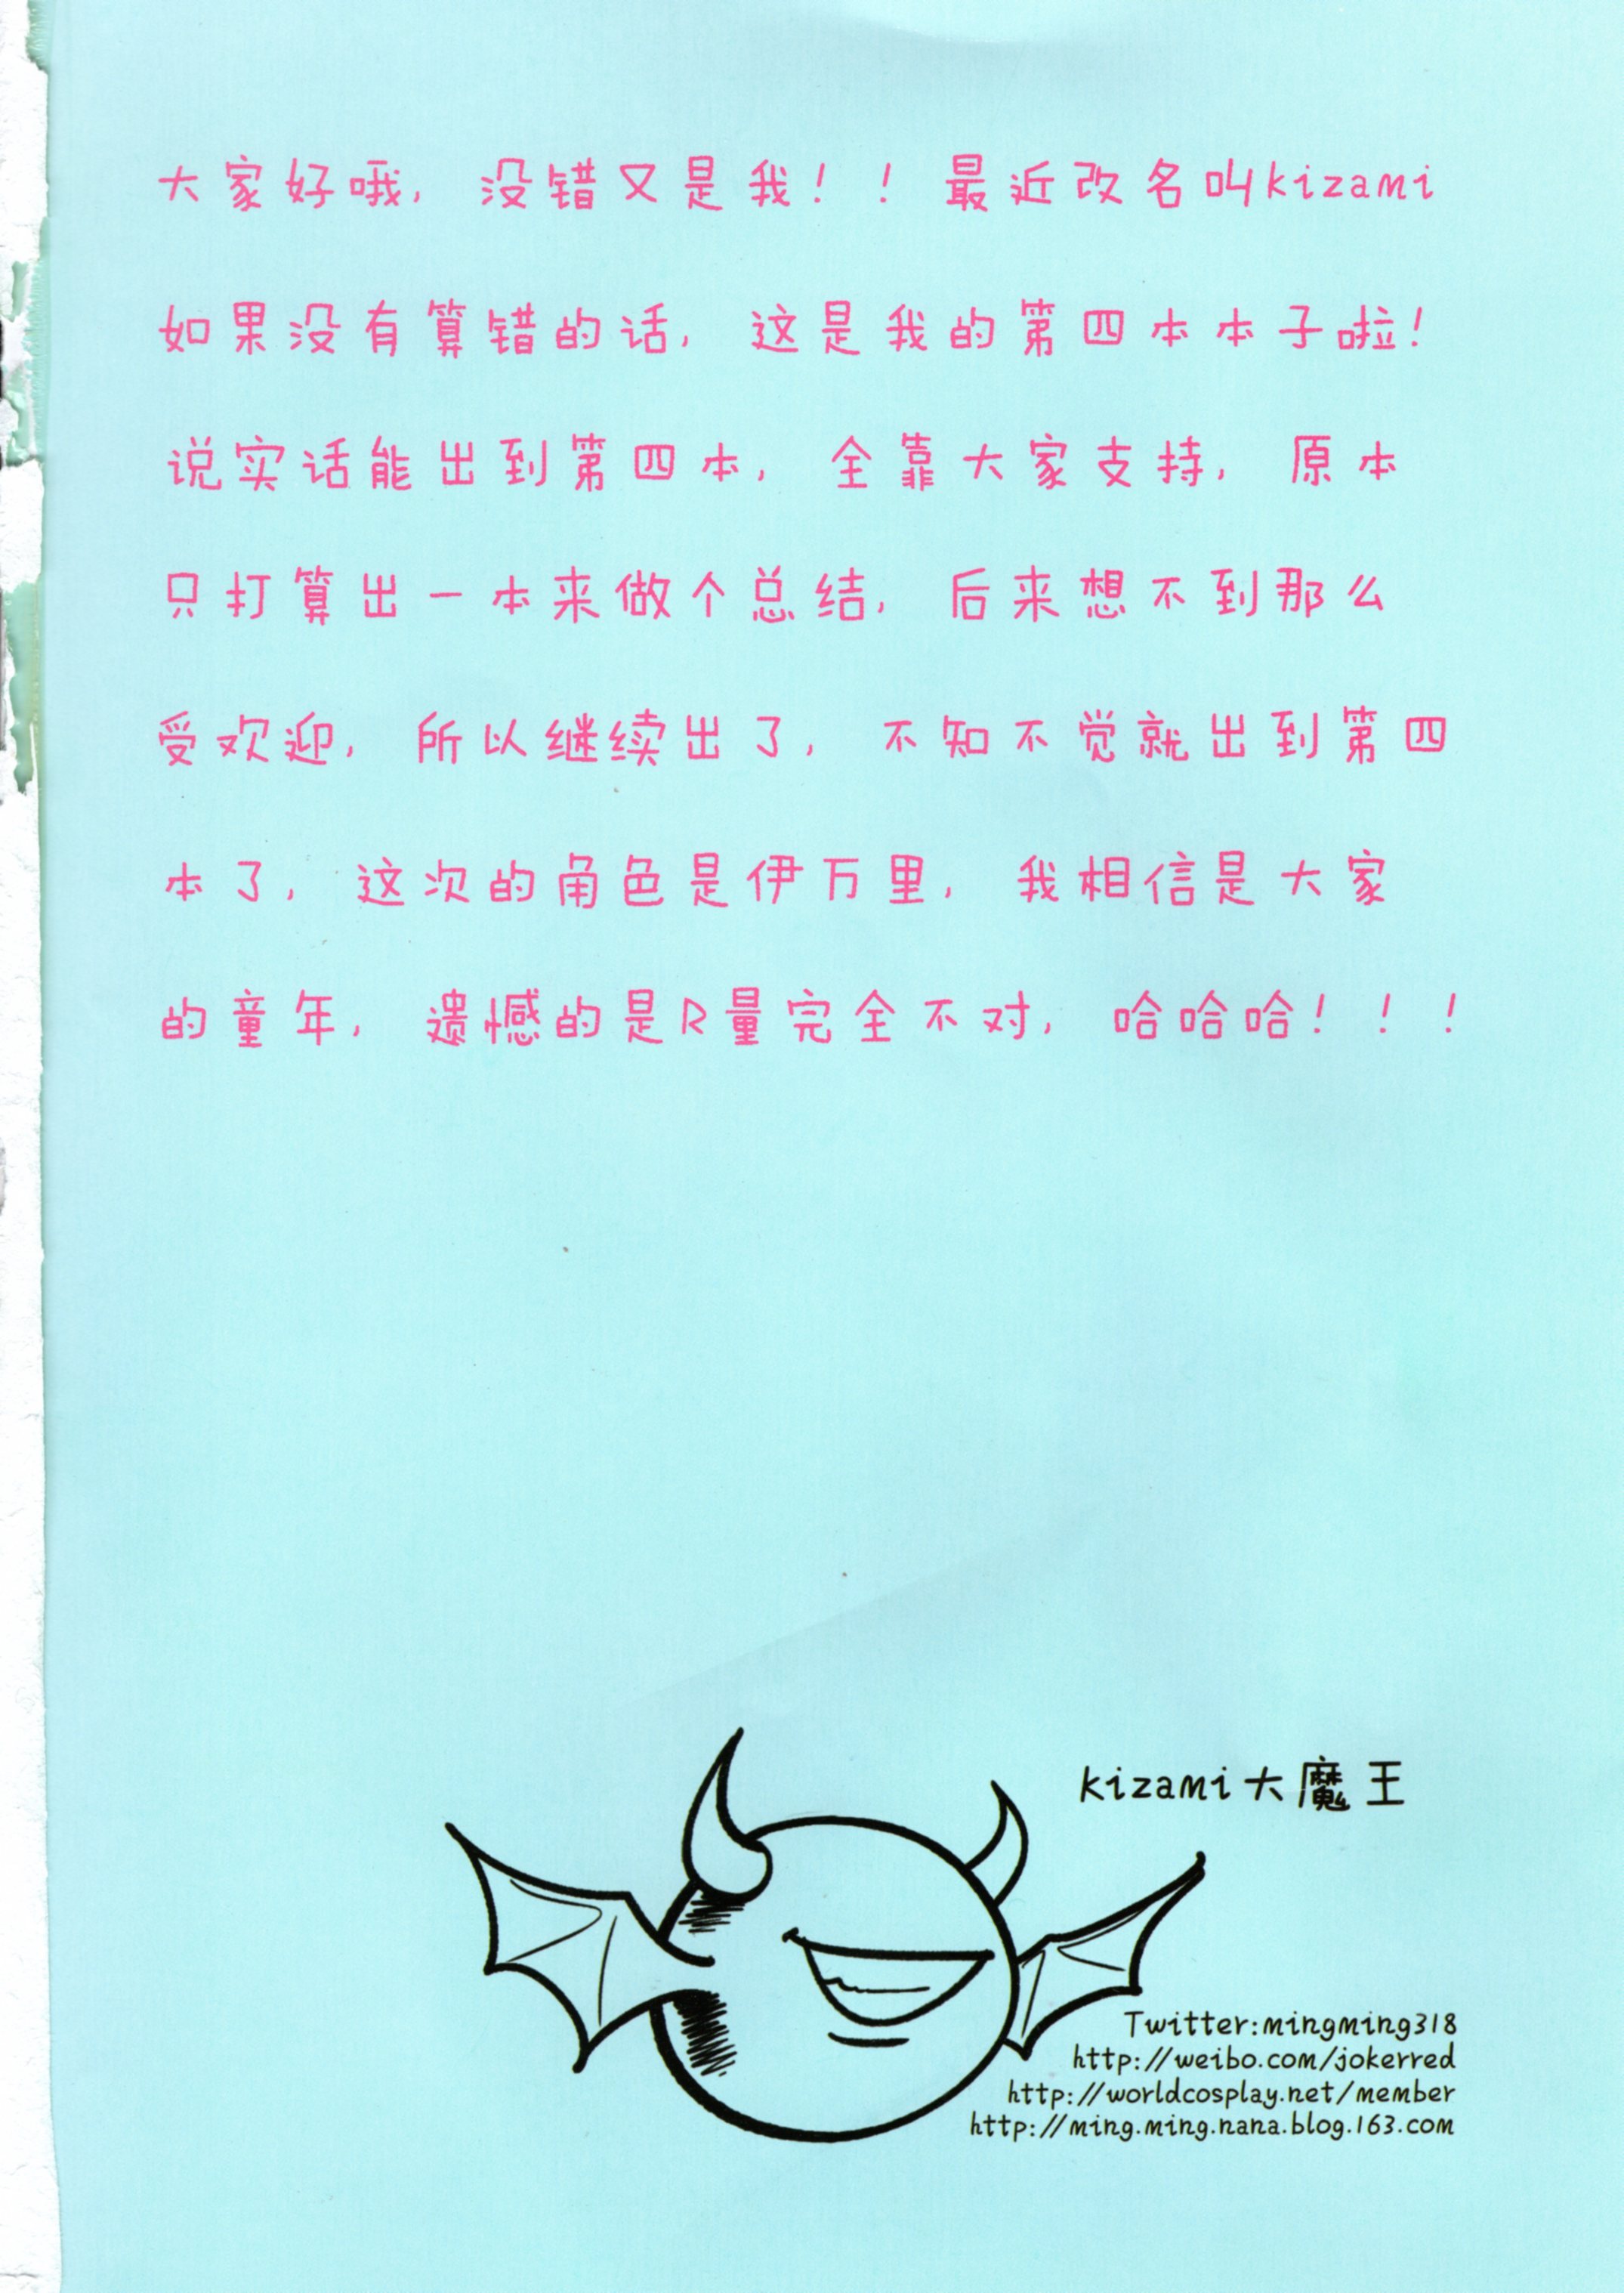 大家好哦，没错又是我！！最近改名叫kizami
如果没有算错的话，这是我的第四本本子啦！
说实话能出到第四本，全靠大家支持，原本
只打算出一本来做个总结，后来想不到那么
受欢迎，所以继续出了，不知不觉就出到第四
本了，这次的角色是伊万里，我相信是大家
的童年，遗憾的是R量完全不对，哈哈哈！！！
kizami大魔王
Twitter:mingming318
http://weibo.com/jokerred
http://worldcosplay.net/member
http://ming.ming.nana.blog.163.com